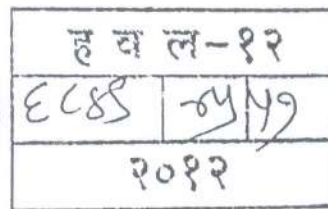 ह व ल-१२
६८४९ २५ ५७
२०१२